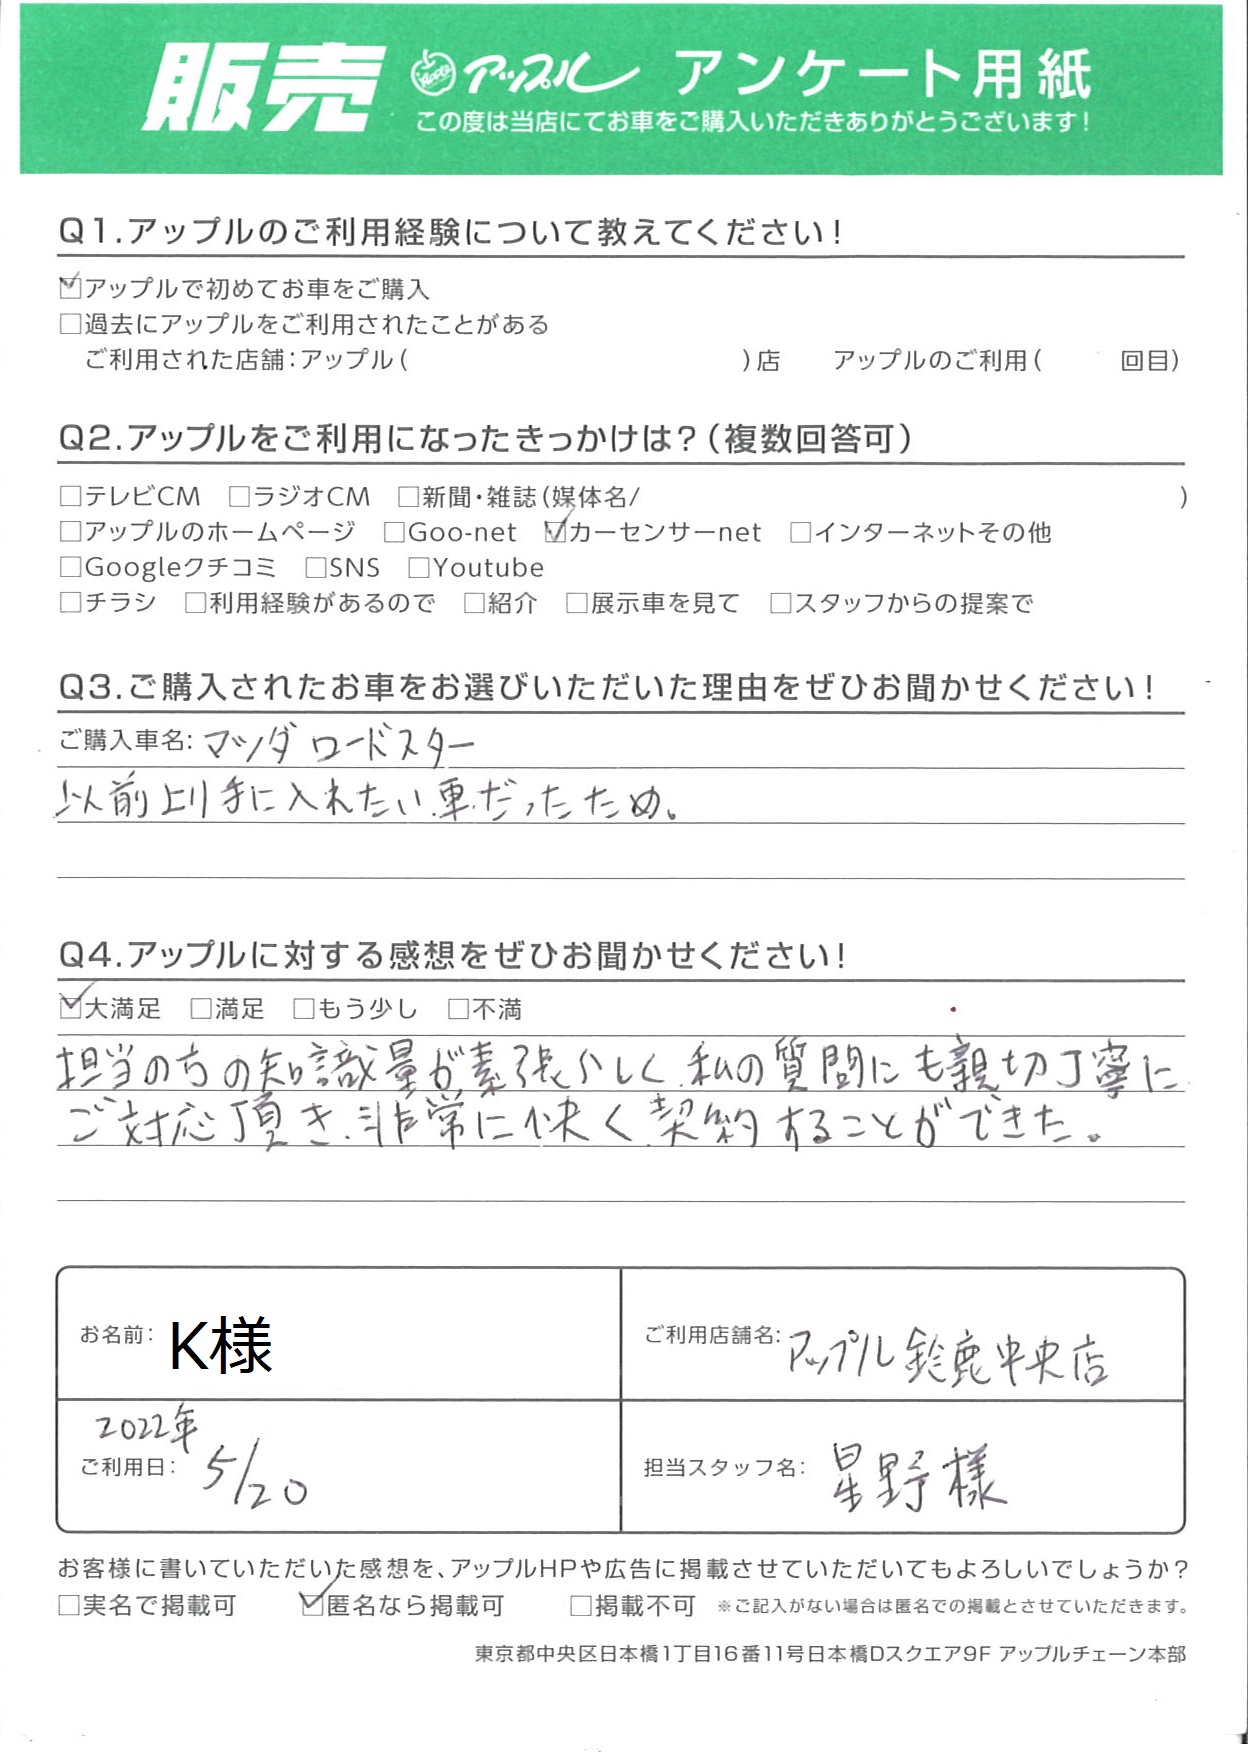 販売 アップル アンケート用紙
この度は当店にてお車をご購入いただきありがとうございます!
Q1.アップルのご利用経験について教えてください!
☑アップルで初めてお車をご購入
□過去にアップルをご利用されたことがある
ご利用された店舗:アップル( )店 アップルのご利用( 回目)
Q2.アップルをご利用になったきっかけは?(複数回答可)
□テレビCM □ラジオCM □新聞・雑誌(媒体名/ )
□アップルのホームページ □Goo-net ☑カーセンサーnet □インターネットその他
□Googleクチコミ □SNS □Youtube
□チラシ □利用経験があるので □紹介 □展示車を見て □スタッフからの提案で
Q3.ご購入されたお車をお選びいただいた理由をぜひお聞かせください!
ご購入車名: マツダ ロードスター
以前より手に入れたい車だったため。
Q4.アップルに対する感想をぜひお聞かせください!
☑大満足 □満足 □もう少し □不満
担当の方の知識量が素張らしく、私の質問にも親切丁寧に
ご対応頂き、非常に快く契約することができた。
お名前: K様
ご利用店舗名: アップル鈴鹿中央店
2022年
ご利用日: 5/20
担当スタッフ名: 星野様
お客様に書いていただいた感想を、アップルHPや広告に掲載させていただいてもよろしいでしょうか?
□実名で掲載可 ☑匿名なら掲載可 □掲載不可 ※ご記入がない場合は匿名での掲載とさせていただきます。
東京都中央区日本橋1丁目16番11号日本橋Dスクエア9F アップルチェーン本部